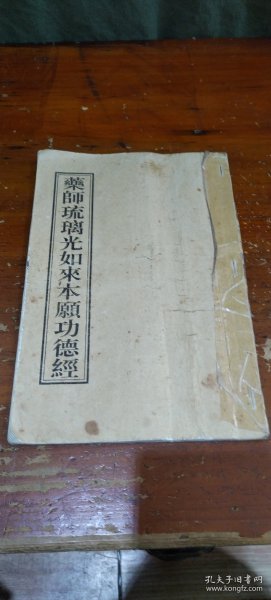 藥師琉璃光如來本願功德經
孔夫子旧书网
www.kongfz.com